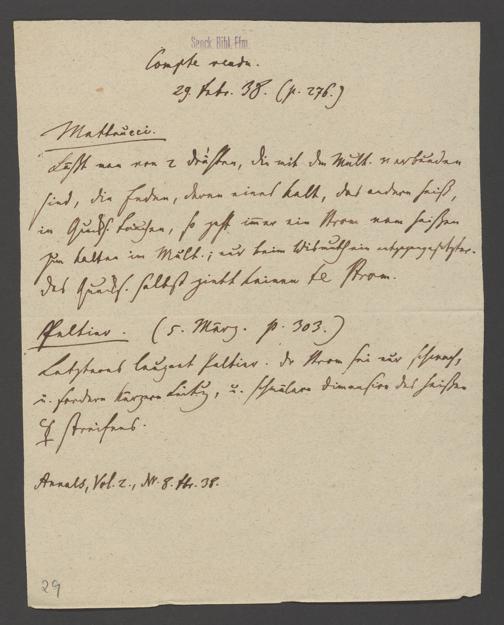 Senck. Bibl. Ffm.
Compte rendu.
29. Febr. 38. (p. 276.)
Matteucci.
Läßt man von 2 Drähten, die mit dem Mult. verbunden
sind, die Enden, deren eines kalt, das andere heiß,
in Quecks. tauchen, so geht immer ein Strom vom heißen
zum kalten im Mult.; nur beim Wismuth ein entgegengesetzter.
Das Quecks. selbst giebt keinen Strom.
Peltier. (5. März. p. 303.)
Letzteres leugnet Peltier. Der Strom sei nur schwach,
u. fordere kurzen u. Dimension des heißen
Streifens.
Annals, Vol. 2., Nr. 8. 38.
29